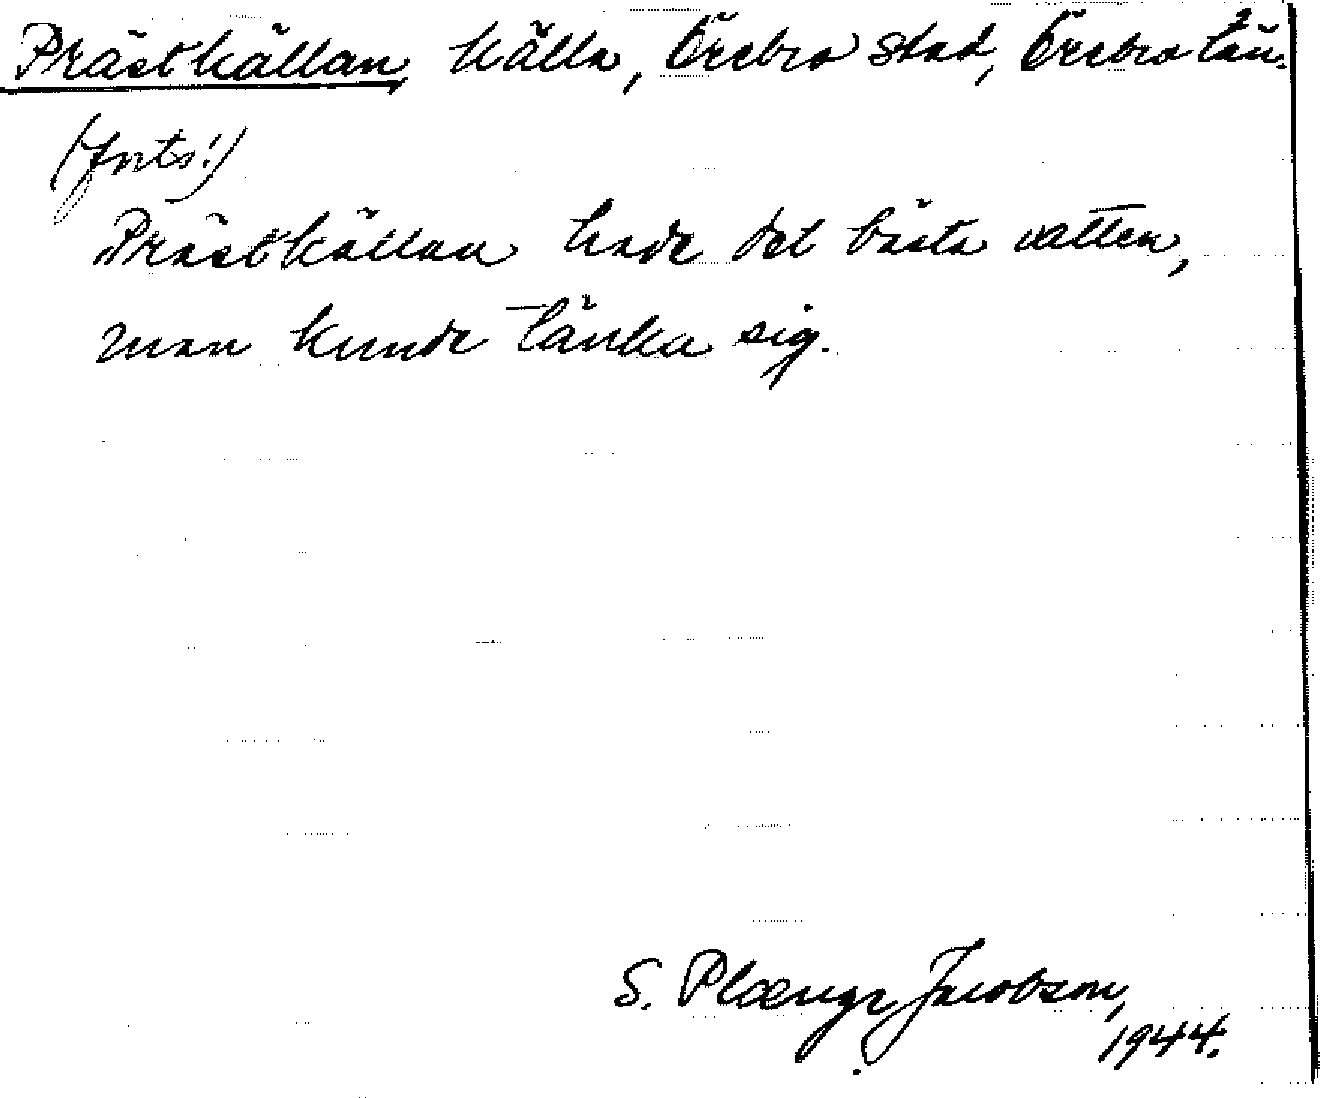 Prästkällan, källa, Örebro stad, Örebro län.
(forts!)
Prästkällan hade det bästa vatten,
man kunde tänka sig.
S. Plœngr Jacobson,
1944.